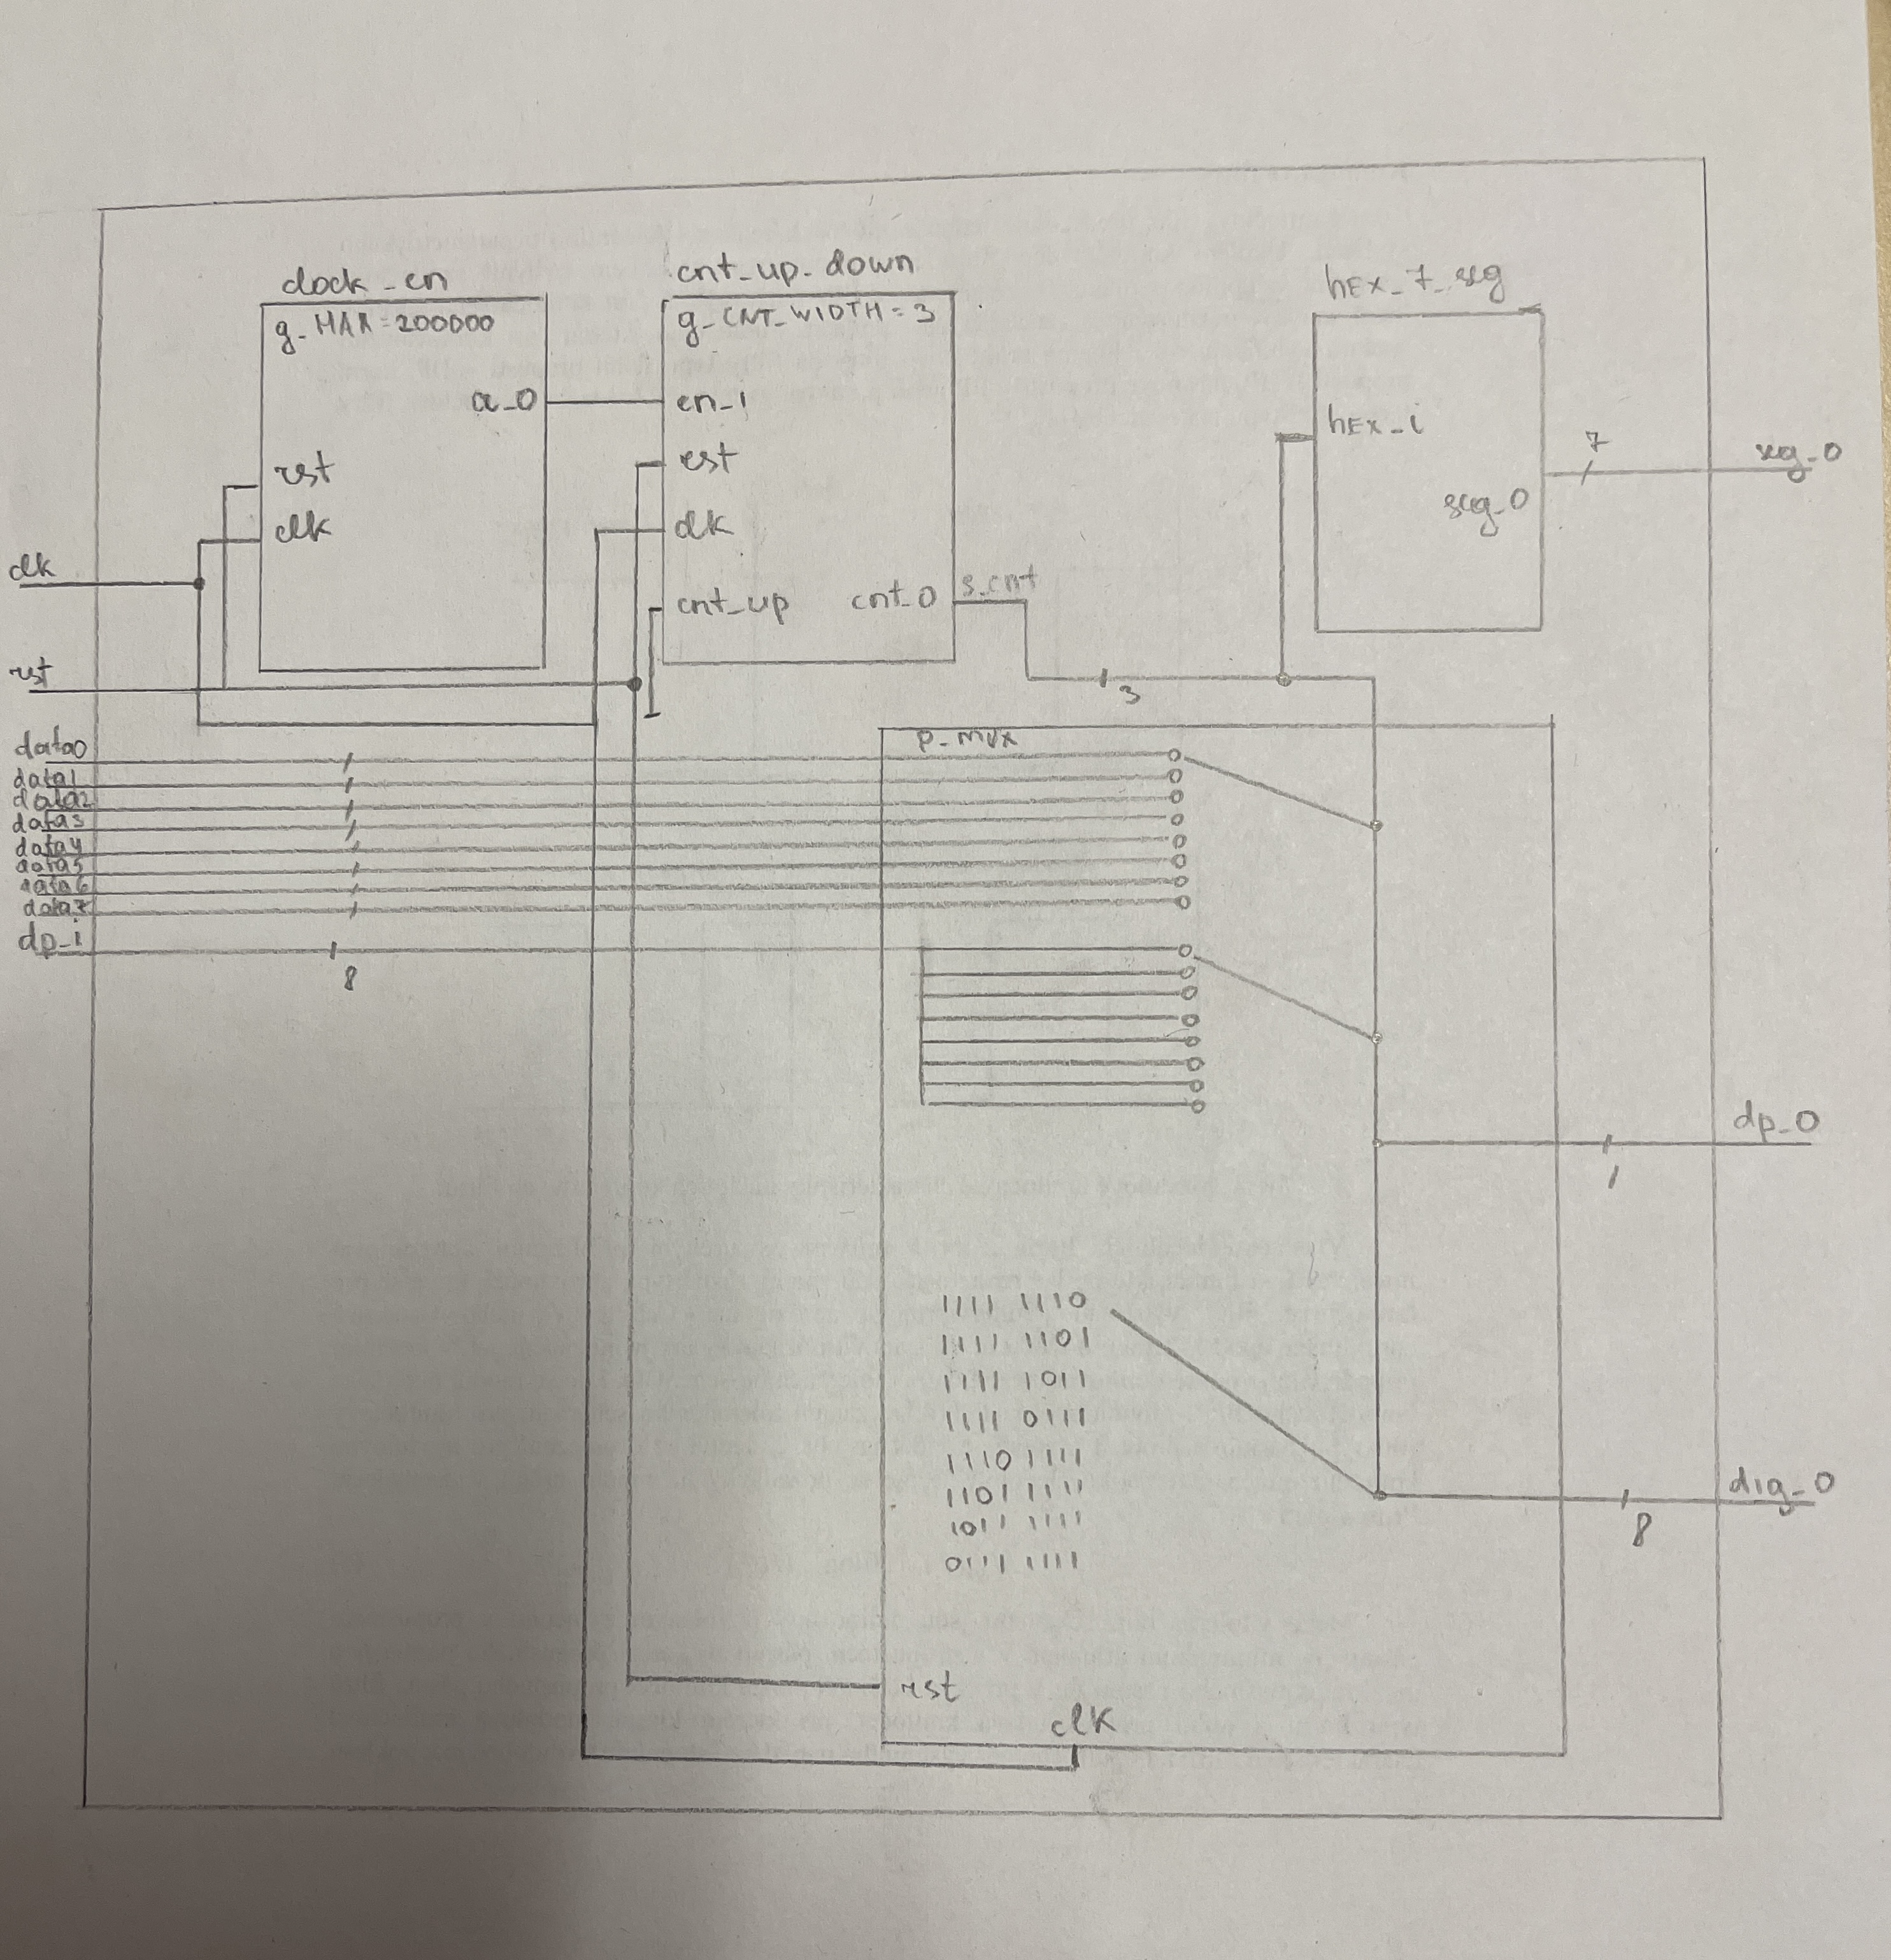 clock_en
g_MAX=200000
a_0
rst
clk
cnt_up_down
g_CNT_WIDTH=3
en_i
rst
clk
cnt_up
cnt_0
s_cnt
hEX_7_seg
hEX_i
seg_0
7
seg_0
clk
rst
3
data0
data1
data2
data3
data4
data5
data6
data7
dp_i
8
p_mux
dp_0
1
1111 1110
1111 1101
1111 1011
1111 0111
1110 1111
1101 1111
1011 1111
0111 1111
dig_0
8
rst
clk